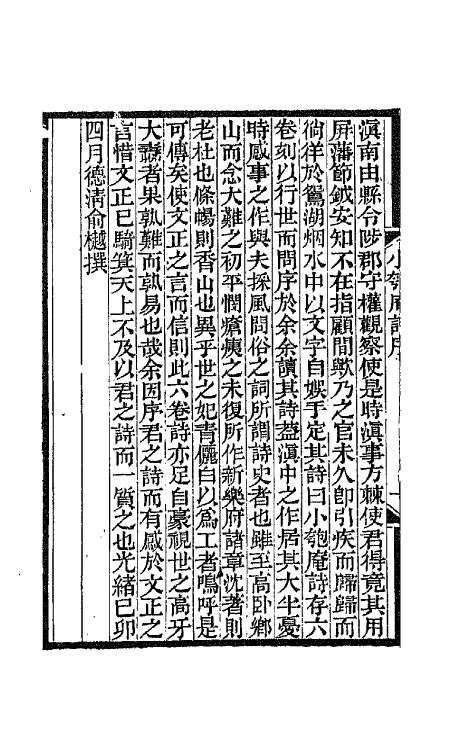 滇南由縣令陟郡守權觀察使是時滇事方棘使君得竟其用
屏藩節鉞安知不在指顧間歟乃之官未久卽引疾而歸歸而
徜徉於鴛湖烟水中以文字自娛手定其詩曰小匏庵詩存六
卷刻以行世而問序於余余讀其詩葢滇中之作居其大半憂
時感事之作與夫採風問俗之詞所謂詩史者也雖至高卧鄉
山而念大難之初平憫瘡痍之未復所作新樂府諸章沈著則
老杜也條暢則香山也異乎世之妃靑儷白以爲工者嗚呼是
可傳矣使文正之言而信則此六卷詩亦足自豪視世之高牙
大纛者果孰難而孰易也哉余因序君之詩而有感於文正之
言惜文正已騎箕天上不及以君之詩而一質之也光緒己卯
四月德淸俞樾撰
小匏庵詩序